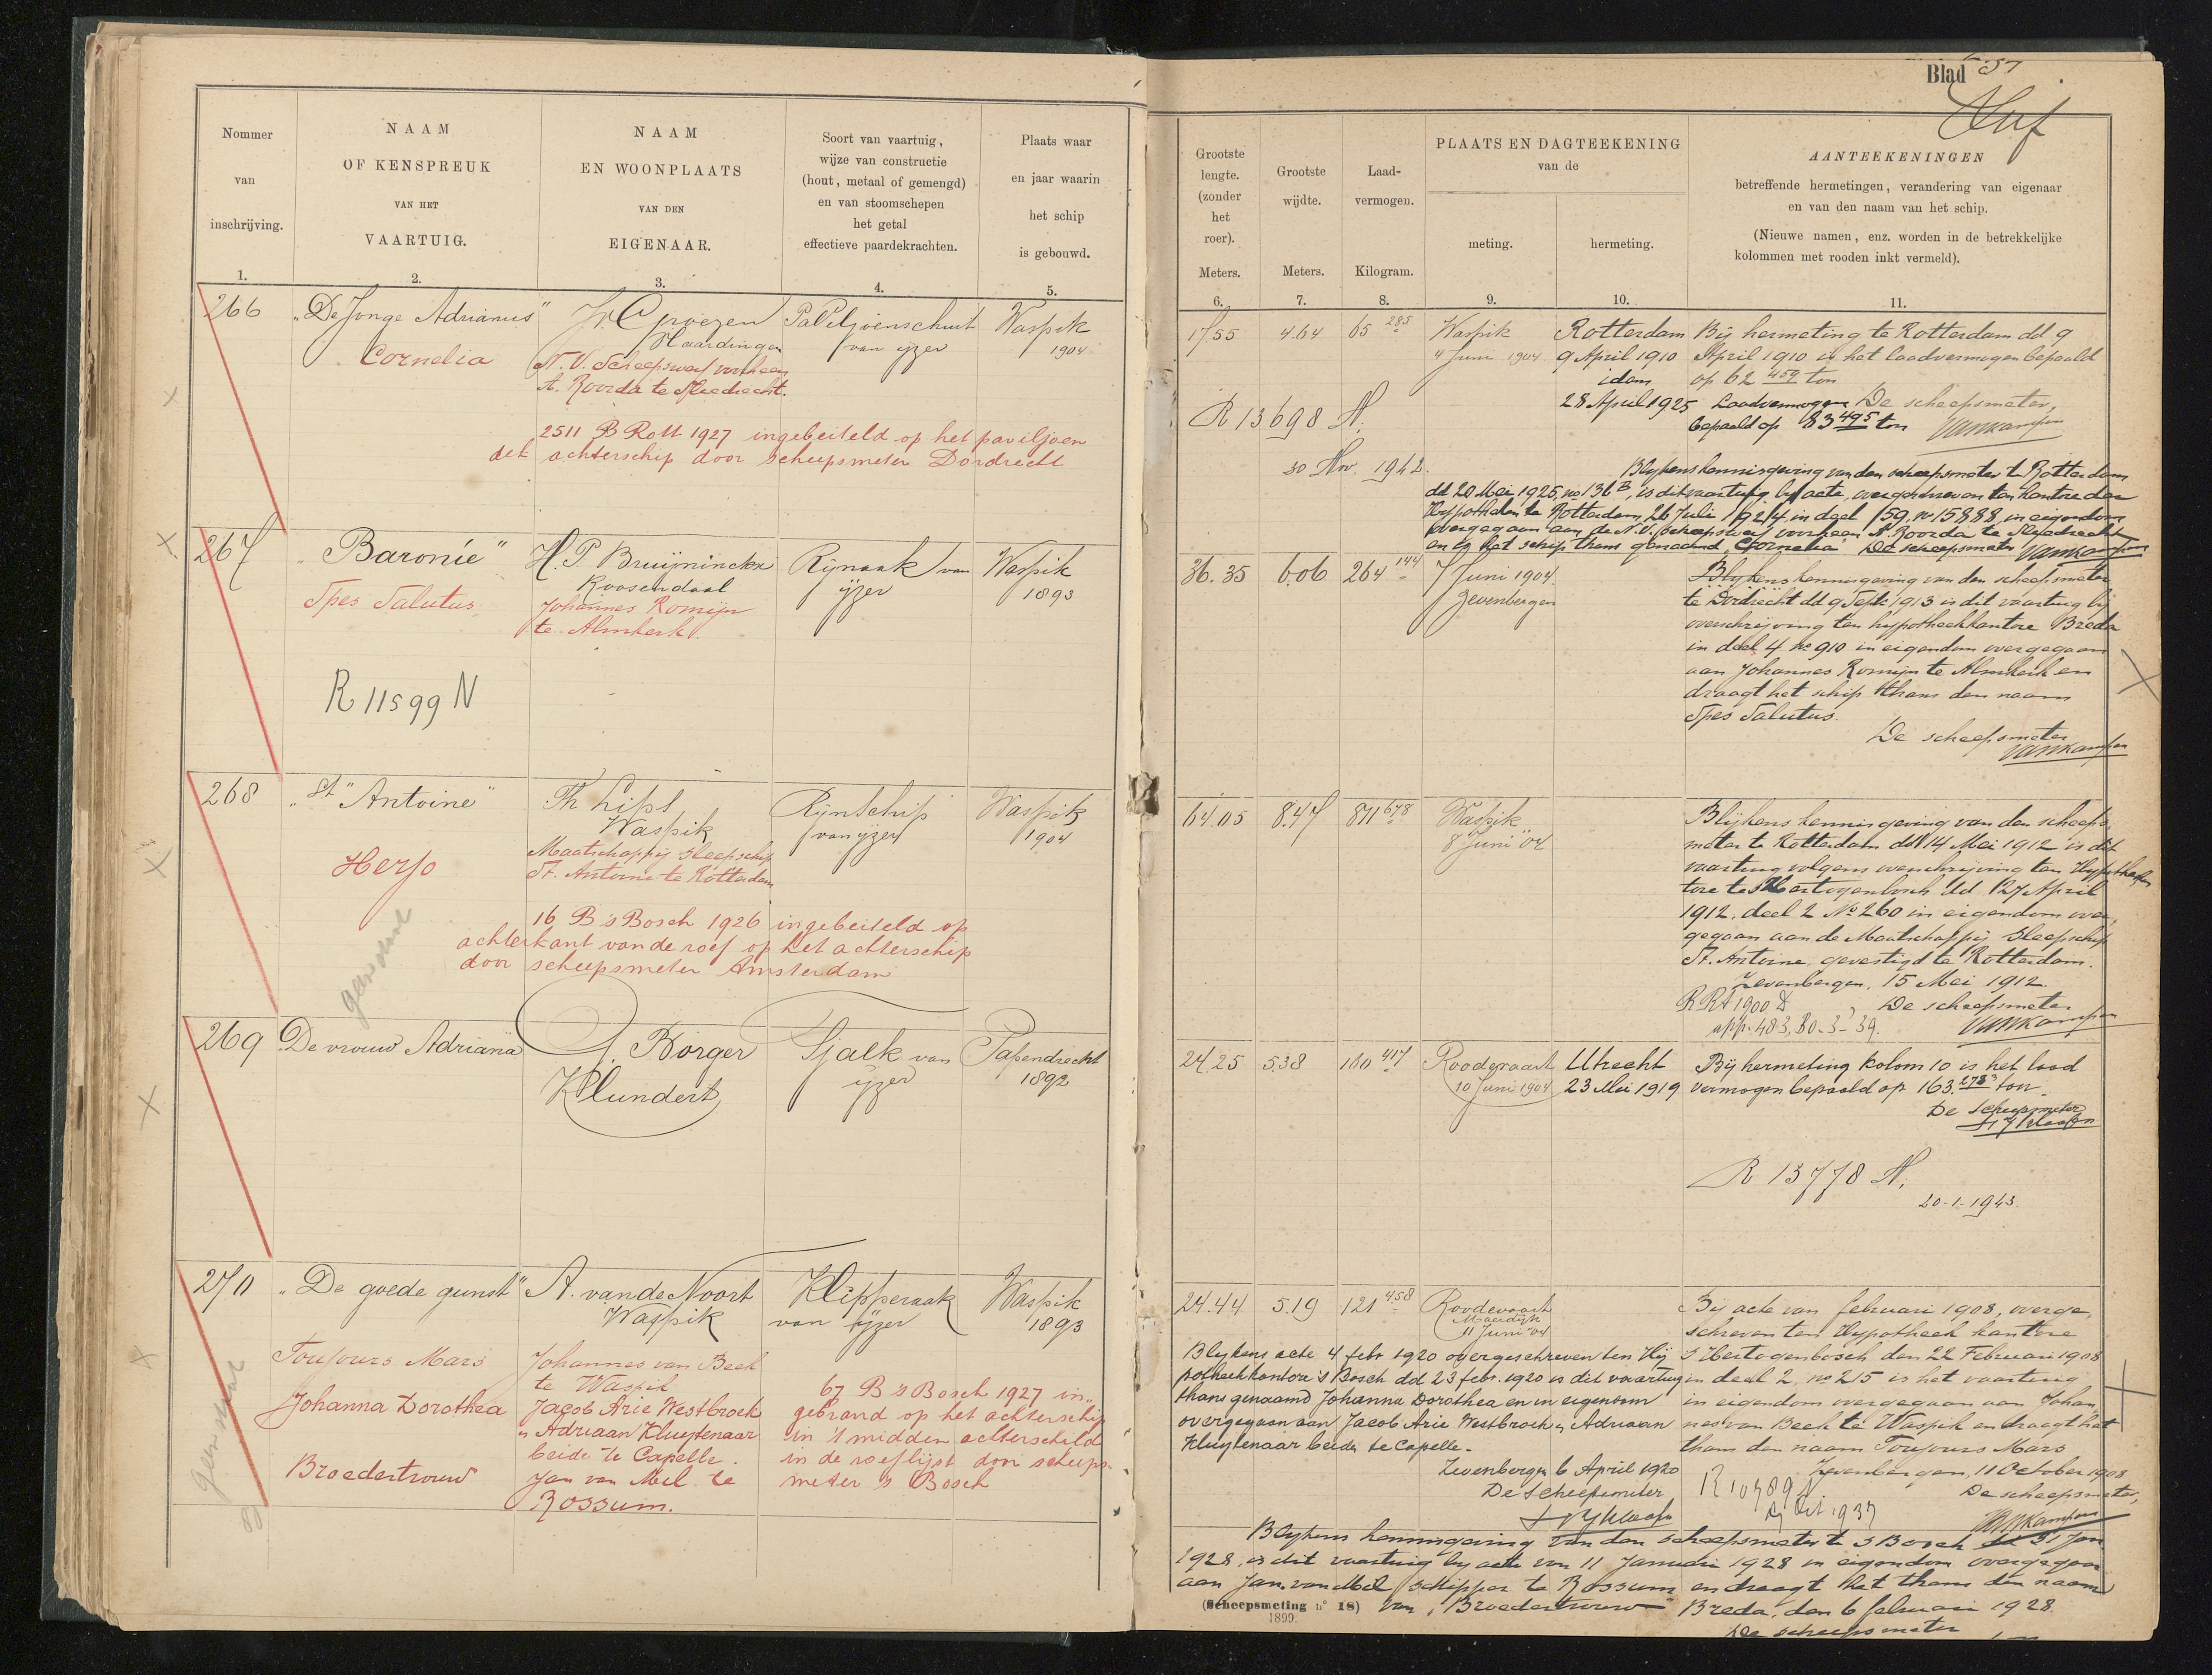 Nommer
van
inschrijving.
1.
NAAM
OF KENSPREUK
VAN HET
VAARTUIG.
2.
NAAM
EN WOONPLAATS
VAN DEN
EIGENAAR.
3.
Soort van vaartuig,
wijze van constructie
(hout, metaal of gemengd)
en van stoomschepen
het getal
effectieve paardekrachten.
4.
Plaats waar
en jaar waarin
het schip
is gebouwd.
5.
266
"De Jonge Adrianus"
Cornelia
Vlaardingen
N.V. Scheepswerf voorheen
A. Roorda te Sliedrecht.
Paviljoenschuit
van ijzer
Waspik
1904
2511 B Rott 1927 ingebeiteld op het paviljoen
det achterschip door scheepsmeter Dordrecht
267
"Baronie"
Spes Salutus
R 11599 N
H. P. Bruijninckx
Roosendaal
Johannes Romijn
te Almkerk.
Rijnaak van
ijzer
Waspik
1893
268
"St Antoine"
Herjo
Th Lips
Waspik
Maatschappij Sleepschip
St. Antoine te Rotterdam
Rijnschip
van ijzer
Waspik
1904
16 B 's Bosch 1926 ingebeiteld op
achterkant van de roef op het achterschip
door scheepsmeter Amsterdam
269
De vrouw Adriana
J. Borger
Klundert
Tjalk van
ijzer
Papendrecht
1892
270
"De goede gunst"
Toujours Mars
Johanna Dorothea
Broedertrouw
A. van de Noort
Waspik
Johannes van Beek
te Waspik
Jacob Arie Westbroek
en Adriaan Kluytenaar
beide te Capelle.
Jan van Mel te
Rossum.
Klipperaak
van ijzer
67 B 's Bosch 1927 in-
gebrand op het achterschip
in 't midden achterschild
in de roeflijst door scheeps-
meter 's Bosch
Waspik
1893
Blad 57
Grootste
lengte.
(zonder
het
roer).
Meters.
6.
Grootste
wijdte.
Meters.
7.
Laad-
vermogen.
Kilogram.
8.
PLAATS EN DAGTEEKENING
van de
meting.
9.
hermeting.
10.
AANTEEKENINGEN
betreffende hermetingen, verandering van eigenaar
en van den naam van het schip.
(Nieuwe namen, enz. worden in de betrekkelijke
kolommen met rooden inkt vermeld).
11.
17.55
4.64
65 285
Waspik
4 Juni 1904
Rotterdam
9 April 1910
idem
28 April 1925
Bij hermeting te Rotterdam dd 9
April 1910 is het laadvermogen bepaald
op 62 459 ton
Laadvermogen De scheepsmeter,
bepaald op 83 495 ton Vankampen
R 13698 N.
30 Nov. 1942.
Blijkens kennisgeving van den scheepsmeter te Rotterdam
dd 20 Mei 1925, no 136 B, is dit vaartuig bij acte, overgeschreven ten kantore der
Hypotheken te Rotterdam, 26 Juli 1924, in deel 159, no 15888 in eigendom
overgegaan aan de N.V. Scheepswerf voorheen A. Roorda te Sliedrecht
en is het schip thans genaamd "Cornelia" De scheepsmeter Vankampen
36.35
6.06
264 144
7 Juni 1904
Zevenbergen
Blijkens kennisgeving van den scheepsmeter
te Dordrecht dd 9 Sept. 1913 is dit vaartuig bij
overschrijving ten hypotheekkantore Breda
in deel 4 no 910 in eigendom overgegaan
aan Johannes Romijn te Almkerk en
draagt het schip thans den naam
Spes Salutus.
De scheepsmeter
Vankampen
64.05
8.47
811 678
Waspik
8 Juni '04
Blijkens kennisgeving van den scheeps-
meter te Rotterdam dd 14 Mei 1912 is dit
vaartuig volgens overschrijving ten Hypotheekkan
tore te s'Hertogenbosch dd 27 April
1912, deel 2 No 260 in eigendom over-
gegaan aan de Maatschappij Sleepschip
St. Antoine, gevestigd te Rotterdam.
Zevenbergen, 15 Mei 1912.
De scheepsmeter
Vankampen
app. 483, 30-3-39.
24.25
5.38
100 417
Roodevaart
10 Juni 1904
Utrecht
23 Mei 1919
Bij hermeting kolom 10 is het laad
vermogen bepaald op 163.278 ton
De Scheepsmeter
R 13778 N.
20-1-1943.
24.44
5.19
121 458
Roodevaart
Moerdijk
11 Juni '04
Bij acte van februari 1908, overge-
schreven ten Hypotheek kantore
s'Hertogenbosch den 22 Februari 1908
in deel 2, no 215 is het vaartuig
in eigendom overgegaan aan Johan
nes van Beek te Waspik en draagt het
thans den naam Toujours Mars
Zevenbergen, 11 October 1908
De scheepsmeter,
Vankampen
Blijkens acte 4 febr 1920 overgeschreven ten Hij
potheekkantore 's Bosch dd 23 febr. 1920 is dit vaartuig
thans genaamd Johanna Dorothea en in eigendom
overgegaan aan Jacob Arie Westbroek en Adriaan
Kluytenaar beide te Capelle.
Zevenbergen 6 April 1920
De Scheepsmeter
R 10789 N
Oct 1937
Blijkens kennisgeving van den scheepsmeter te s Bosch dd 31 Jan
1928, is dit vaartuig bij acte van 11 Januari 1928 in eigendom overgegaan
aan Jan van Mel, schipper te Rossum en draagt het thans den naam
van "Broedertrouw" Breda, den 6 februari 1928
De scheepsmeter
(Scheepsmeting no 18)
1899.